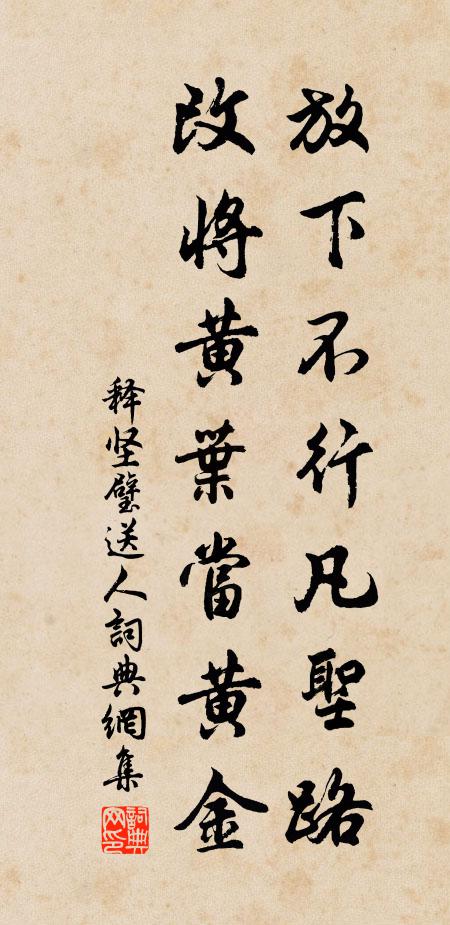 放下不行凡聖路
改將黃葉當黃金
释坚璧送人詞典網集
詞典網印